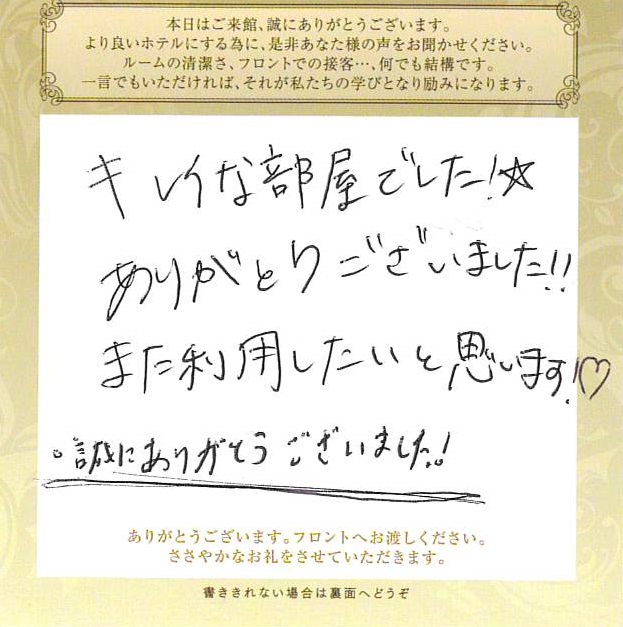 本日はご来館、誠にありがとうございます。
より良いホテルにする為に、是非あなた様の声をお聞かせください。
ルームの清潔さ、フロントでの接客…、何でも結構です。
一言でもいただければ、それが私たちの学びとなり励みになります。
キレイな部屋でした!☆
ありがとうございました!!
また利用したいと思います!♡
。誠にありがとうございました!
ありがとうございます。フロントへお渡しください。
ささやかなお礼をさせていただきます。
書ききれない場合は裏面へどうぞ